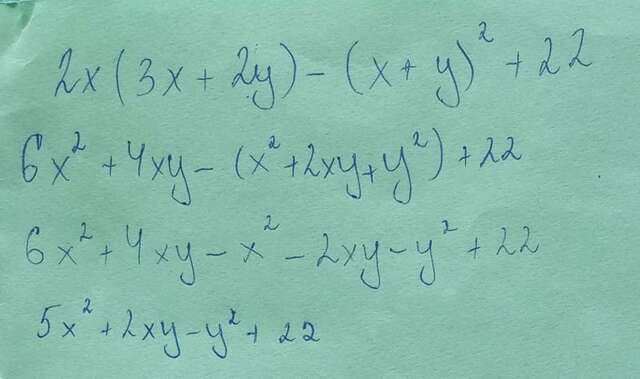 2x(3x+2y)-(x+y)²+22
6x²+4xy-(x²+2xy+y²)+22
6x²+4xy-x²-2xy-y²+22
5x²+2xy-y²+22